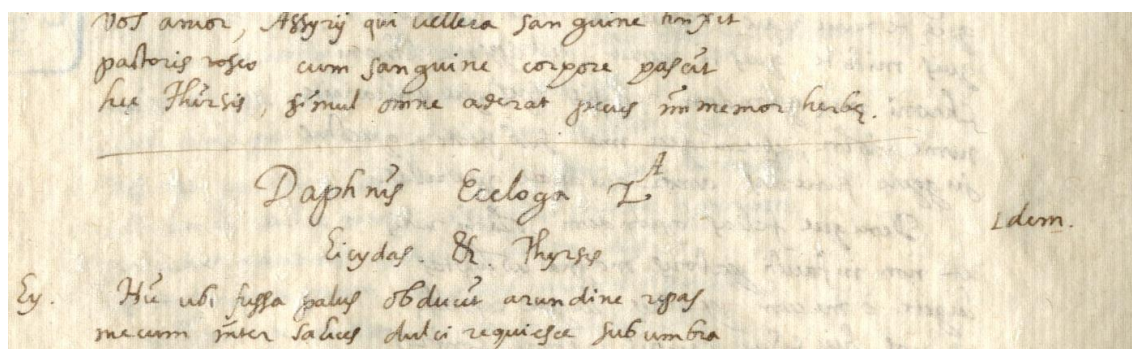 Vos amor, Assyrij qui vellera sanguine tinxit
pastoris roseo cum sanguine corpore pascit
hec Thirsis, simul omne aderat pecus immemor herbę.
Daphnis Ecloga I^A
Idem.
Licydas. & Thyrsis
Ly. Huc ubi fussa palus obducit arundine ripas
mecum inter salices dulci requiesce sub umbra